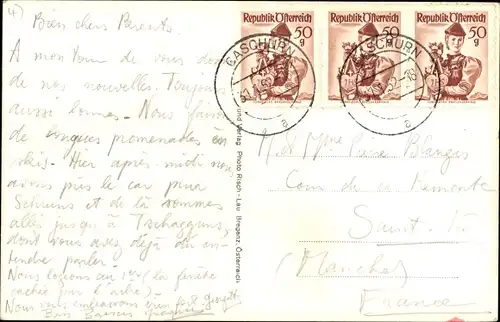 4)
Bien chers Parents.
A mon tour de vous donner
de nos nouvelles. Toujours
aussi bonnes - Nous faisons
de longues promenades en
skis - Hier après-midi nous
avons pris le car pour
Schruns et de là sommes
allés jusqu'à Tschagguns,
dont vous avez déjà dû en-
tendre parler -
Nous logeons au 1er (la fenêtre
cachée par l'arbre) -
Nous vous embrassons bien fort
Bons Baisers
und Verlag Photo Risch-Lau Bregenz, Österreich
Republik Österreich
50
g
Republik Österreich
50
g
Republik Österreich
50
g
GASCHURN
a
GASCHURN
a
M. et Mme Pierre
Cour de la Remonte
Saint-Lô
(Manche)
France